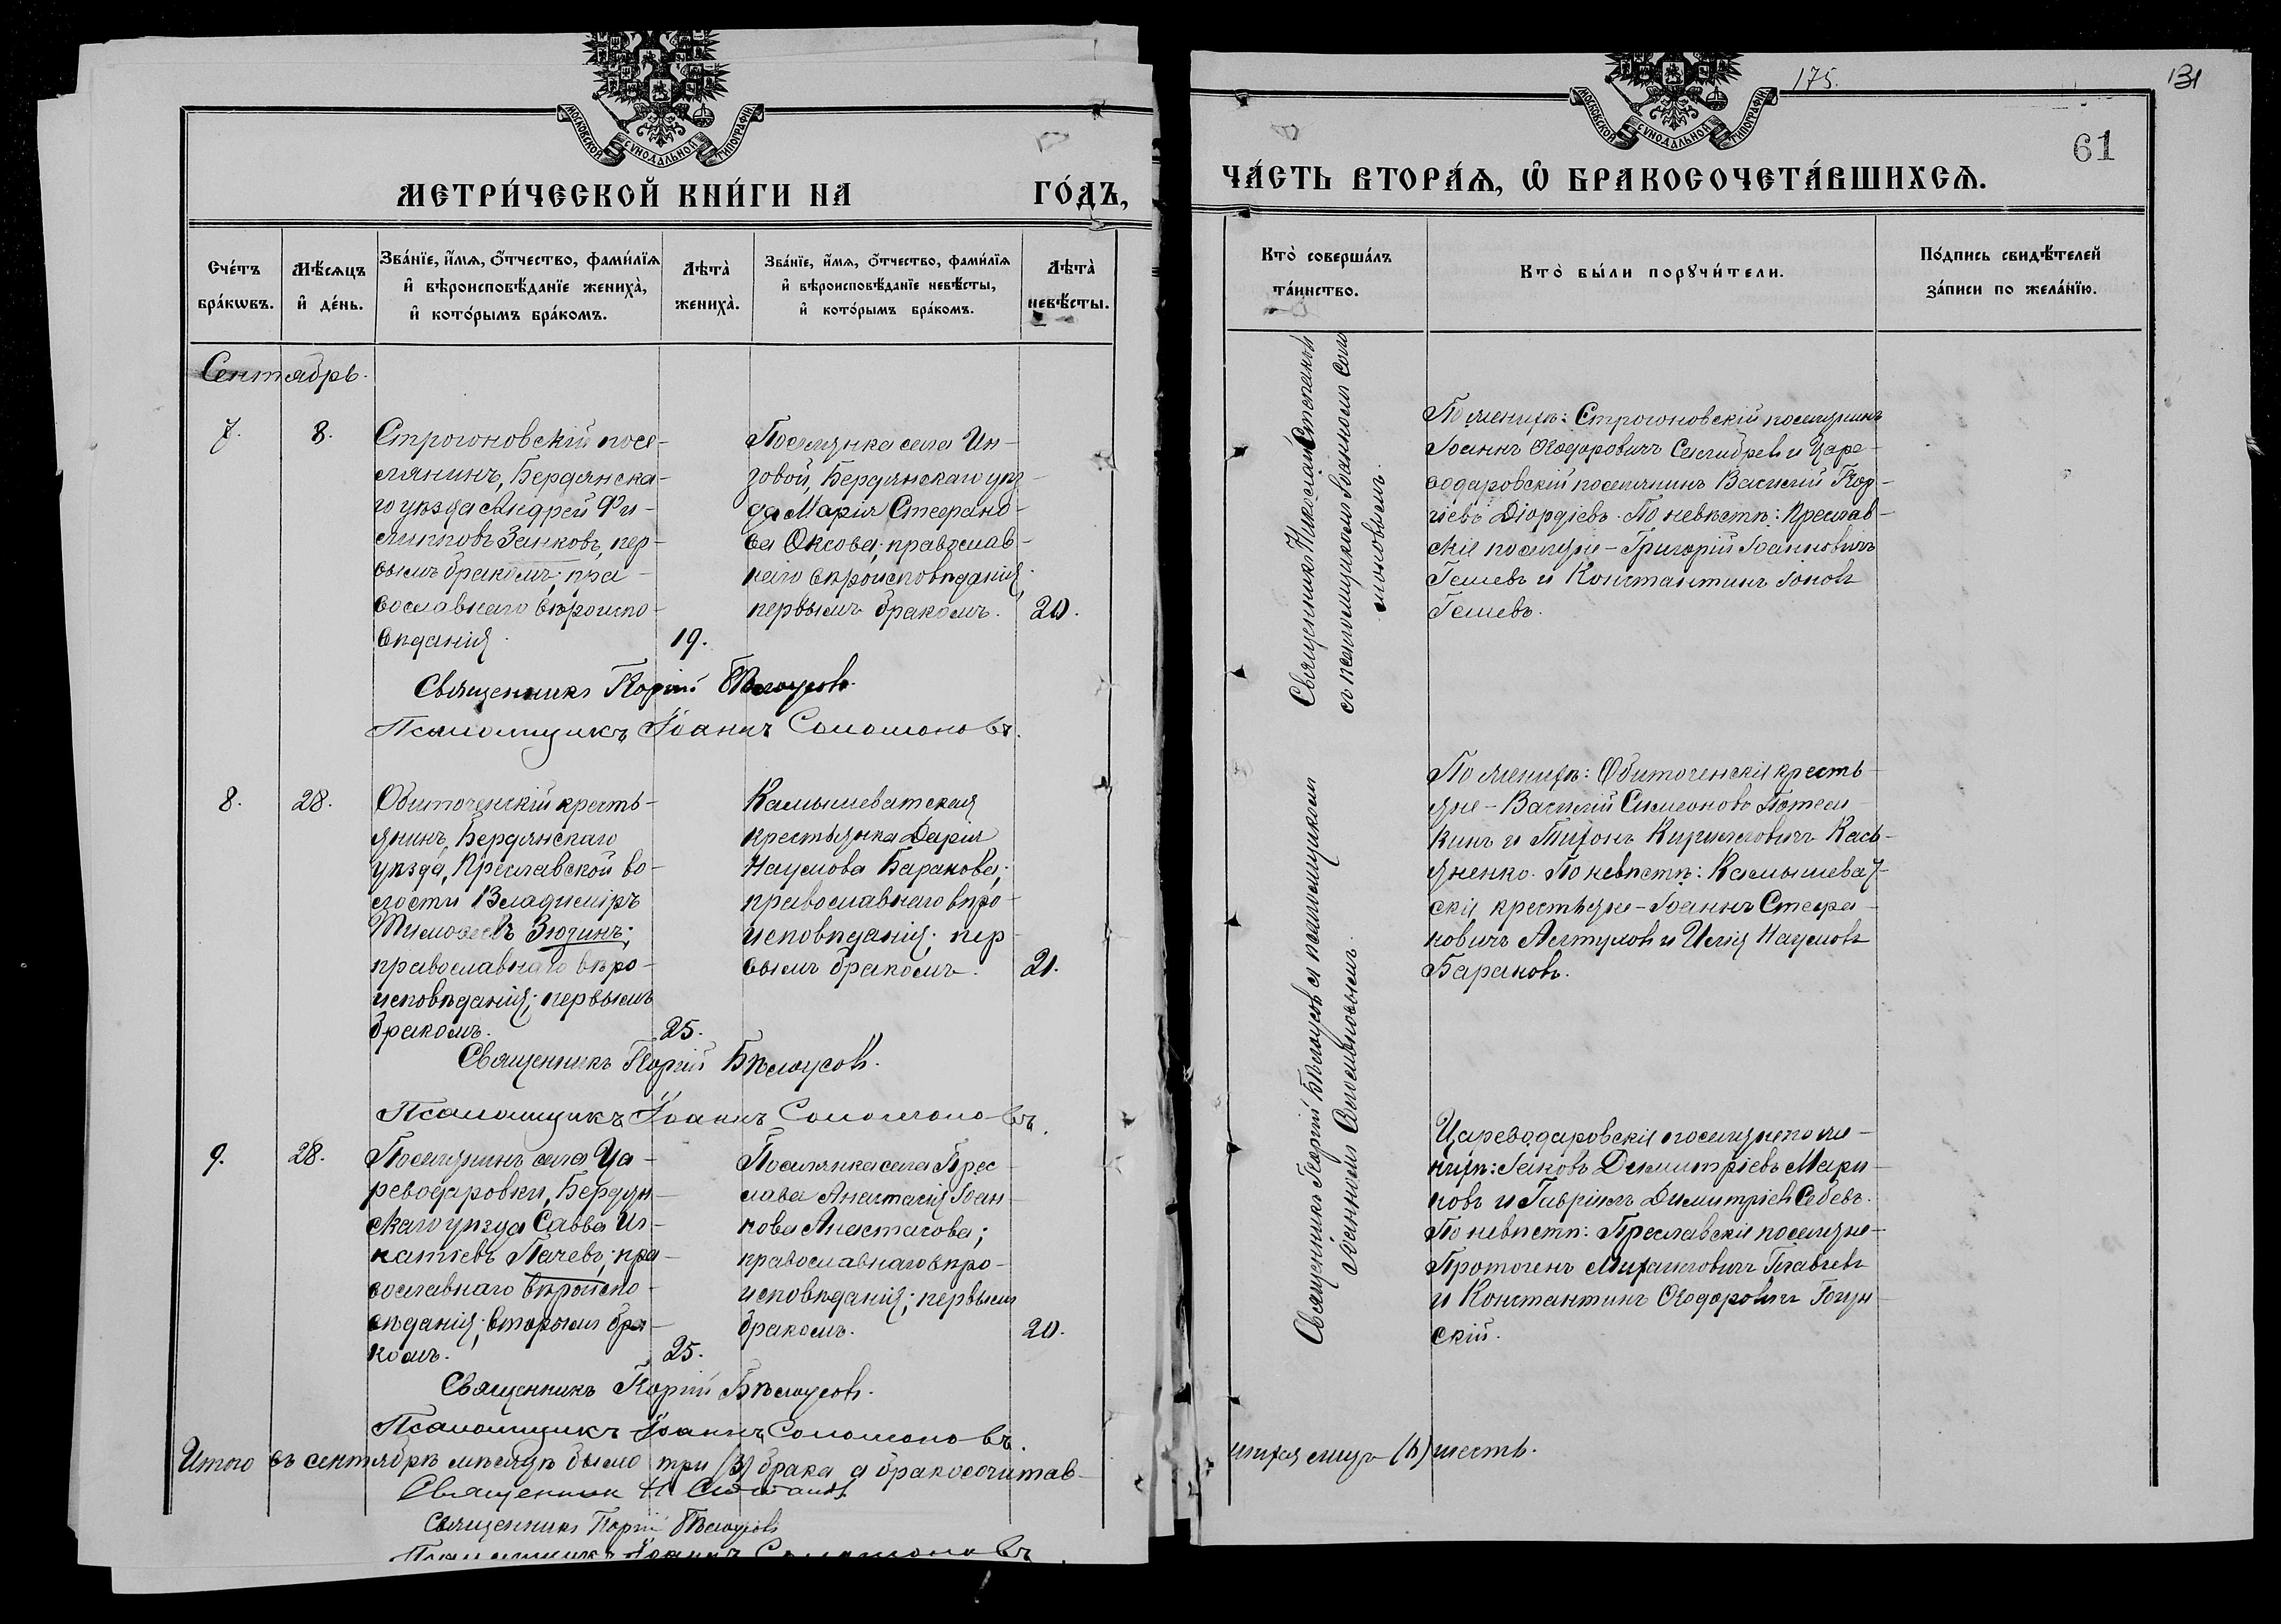 МОСКОВСКОЙ СУНОДАЛЬНОЙ ТИПОГРАФІИ
МЕТРИ́ЧЕСКОЙ КНИ́ГИ НА ГО́ДЪ,
Сче́тъ бра́кѡвъ.
Мѣ́сѧцъ и҆ де́нь.
Зва́нїе, и҆́мѧ, ѻ҆́тчество, фами́лїѧ
и҆ вѣроисповѣ́данїе жениха̀,
и҆ кото́рымъ бра́комъ.
Лѣта̀ жениха̀.
Зва́нїе, и҆́мѧ, ѻ҆́тчество, фами́лїѧ
и҆ вѣроисповѣ́данїе невѣ́сты,
и҆ кото́рымъ бра́комъ.
Лѣта̀ невѣ́сты.
Сентябрь.
7.
8.
Строгоновскій посе-
лянинъ, Бердянска-
го уѣзда Андрей Фи-
липповъ Занковъ, пер-
вымъ бракомъ; пра-
вославнаго вѣроиспо-
вѣданія.
19.
Поселянка села Ин-
зовой, Бердянскаго уѣз-
да Марія Стефано-
ва Оксова; православ-
наго вѣроисповѣданія,
первымъ бракомъ.
20.
Священникъ Георгій Бѣлоусовъ.
Псаломщикъ Іоаннъ Соломоновъ.
8.
28.
Обиточенскій кресть-
янинъ, Бердянскаго
уѣзда, Преславской во-
лости Владиміръ
Тимофеевъ Зюзинъ;
православнаго вѣро-
исповѣданія; первымъ
бракомъ.
25.
Камышеватская
крестьянка Дарія
Наумова Баранова;
православнаго вѣро-
исповѣданія; пер-
вымъ бракомъ.
21.
Священникъ Георгій Бѣлоусовъ.
Псаломщикъ Іоаннъ Соломоновъ.
9.
28.
Поселянинъ села Ца-
реводаровки, Бердян-
скаго уѣзда Савва Иг-
натіевъ Пачевъ; пра-
вославнаго вѣроиспо-
вѣданія; вторымъ бра-
комъ.
25.
Поселянка села Прес-
лава Анастасія Іоан-
нова Анастасова;
православнаго вѣро-
исповѣданія; первымъ
бракомъ.
20.
Священникъ Георгій Бѣлоусовъ.
Псаломщикъ Іоаннъ Соломоновъ.
Итого въ сентябрѣ мѣсяцѣ было три (3) брака, а бракосочитав-
Священникъ Н Степановъ
Священникъ Георгій Бѣлоусовъ
Псаломщикъ Іоаннъ Соломоновъ.
175.
131
61
МОСКОВСКОЙ СУНОДАЛЬНОЙ ТИПОГРАФІИ
ЧА́СТЬ ВТОРА́Ѧ, Ѡ҆ БРАКОСОЧЕТА́ВШИХСѦ.
Кто̀ соверша́лъ
та́инство.
Кто̀ бы́ли порꙋчи́тели.
По́дпись свидѣ́телей
за́писи по жела́нїю.
Священникъ Николай Степановъ
съ псаломщикомъ Іоанномъ Соло-
моновымъ.
По женихѣ: Строгоновскій поселянинъ
Іоаннъ Ѳеодоровичъ Сентябревъ и Царе-
водаровскій поселянинъ Василій Геор-
гіевъ Діордіевъ. По невѣстѣ: Преслав-
скіе поселяне – Григорій Іоанновичъ
Гешевъ и Константинъ Іоновъ
Гешевъ.
Священникъ Георгій Бѣлоусовъ съ псаломщикомъ
Іоанномъ Соломоновымъ.
По женихѣ: Обиточенскіе кресть-
яне – Василій Симеоновъ Потем-
кинъ и Тихонъ Кирилловичъ Кась-
яненко. По невѣстѣ: Камышеват-
скіе крестьяне – Іоаннъ Стефа-
новичъ Алтуховъ и Илія Наумовъ
Барановъ.
Цареводаровскіе поселяне по же-
нихѣ: Іаковъ Димитріевъ Мари-
новъ и Гавріилъ Димитріевъ Сѣбевъ.
По невѣстѣ: Преславскіе поселяне –
Протогенъ Михаиловичъ Главчевъ
и Константинъ Ѳеодоровичъ Гогун-
скій.
шихся лицъ (6) шесть.